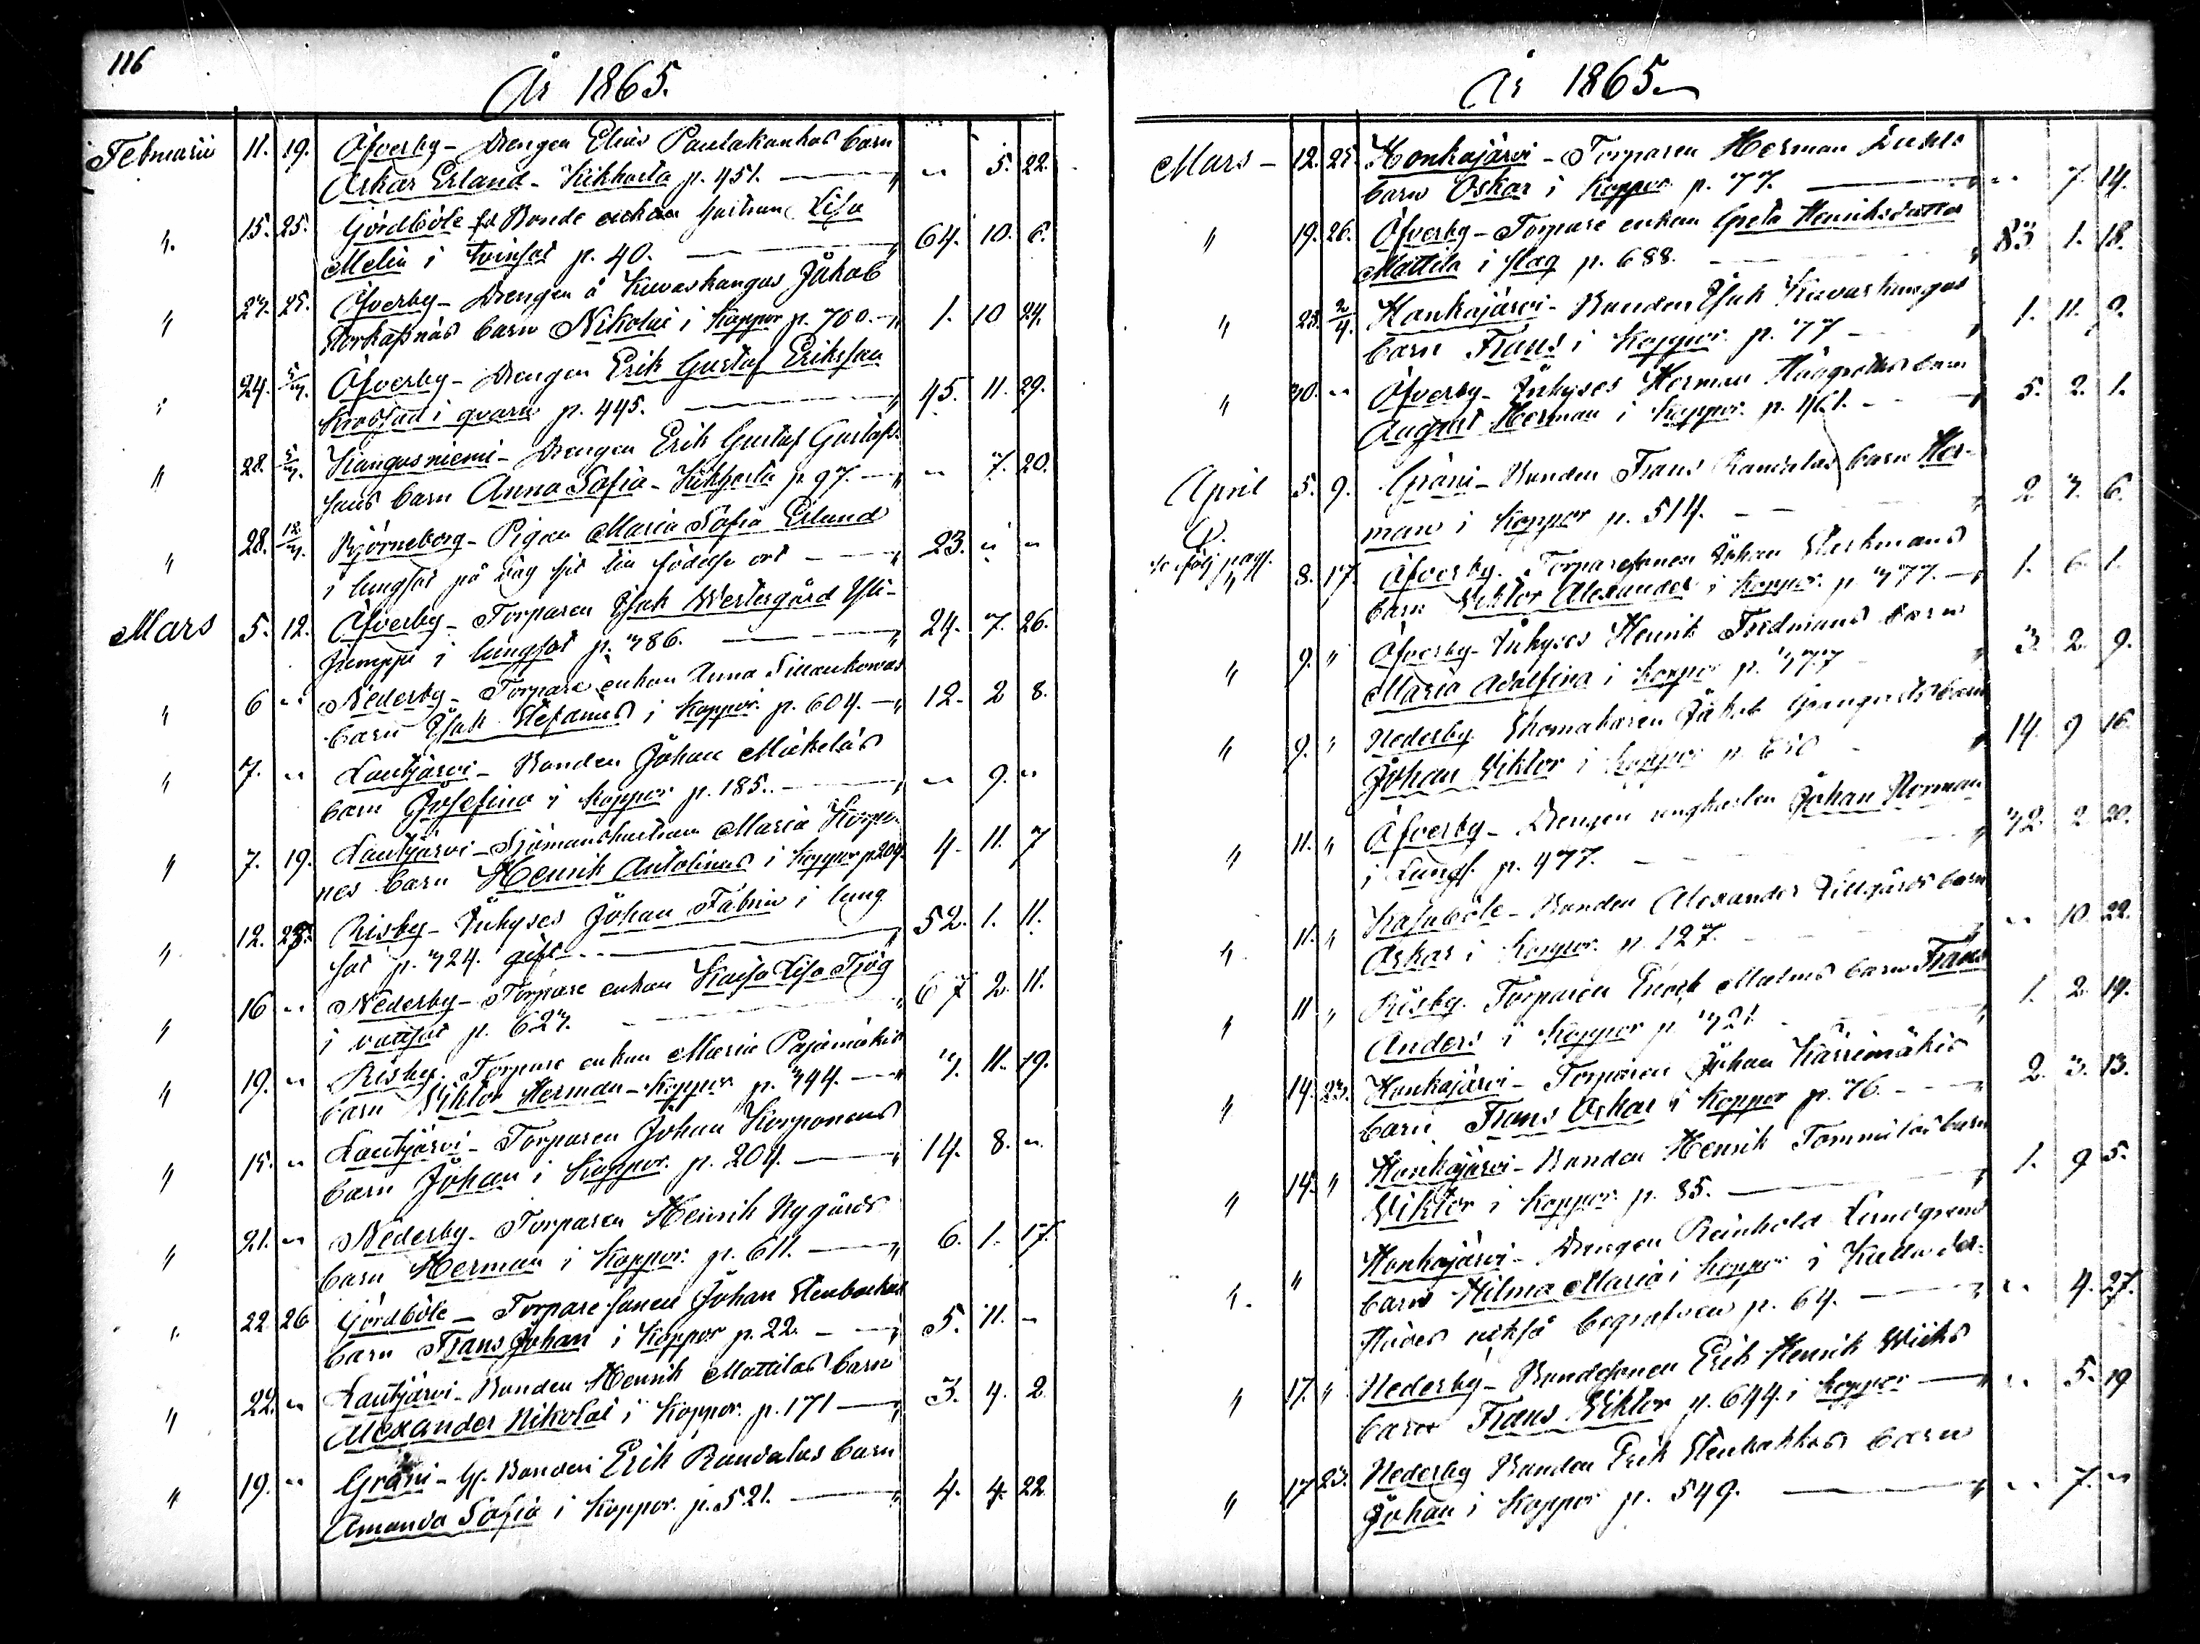 116
År 1865.
Februari 11. 19. Öfverby - Drengen Elias Pautakankas barn
Oskar Erland - Kikhosta p. 451. " 5. 22.
". 15. 25. Gördböle Bonde enkan hustrun Lisa
Melin i p. 40. 64. 10. 6.
" 25. Öfverby - Drengen å Kuvaskangas Jåkob
barn Nikolai i koppor p. 700. 1. 10 24.
" 24. 5/3. Öfverby - Drengen Erik Gustaf Eriksson
i qvarn p. 445. 45. 11. 29.
" 28. 5/3. Kangasniemi - Drengen Erik Gustaf Gustafs-
sons barn Anna Sofia - Kikhosta p. 97. " 7. 20.
" 28. 12/3. Björneborg - Pigan Maria Sofia Erland
i lungsot på väg hit till födelse ort 23. " "
Mars 5. 12. Öfverby - Torparen Isak Westergård Yli-
i lungsot p. 386. 24. 7. 26.
" 6 " Nederby - Torpare enkan Anna
barn Isak Stefanus i koppor. p. 604. 12. 2 8.
" 7. " Lautjärvi - Bonden Johan Mickelas
barn Josefina i koppor p. 185. " 9. "
" 7. 19. Lautjärvi - Sjömanshustrun Maria Korpo-
nes barn Henrik Antolinus i koppor p. 204. 4. 11. 7
" 12. Risby - Inhyses Johan Fabrin i lung
sot p. 324. gift 52. 1. 11.
" 16 " Nederby - Torpare enkan Kaisa Lisa Sjög
i vattsot p. 623. 67 2. 11.
" 19. " Risby. Torpare enkan Maria Pajamäkis
barn Viktor Herman - koppor p. 344. 3. 11. 19.
" 15. " Lautjärvi - Torparen Johan Korponens
barn Johan i koppor. p. 204. 14. 8. "
" 21. " Nederby - Torparen Henrik Nygårds
barn Herman i koppor. p. 611. 6. 1. 17.
" 22 26 Gördböle - Torpare sonen Johan Stenbackas
barn Frans Johan i koppor p. 22. 5. 11. "
" 22. " Lautjärvi - Bonden Henrik Mattilas barn
Alexander Nikolai i koppor. p. 171 3. 4. 2
" 19. " Gräni - Bonden Erik Randalas barn
Amanda Sofia i koppor. p. 521. 4. 4. 22

År 1865.
Mars - 12. 25. Honkajärvi - Torparen Herman
barn Oskar i koppor p. 77. " 7 14.
" 19. 26. Öfverby - Torpare enkan Greta Henriksdotter
Mattila i slag p. 688. 83 1. 18.
" 23. 2/4. Honkajärvi - Bonden Isak Kuvaskangas
barn Frans i koppor. p. 77 1. 11. 9.
" 30. " Öfverby - Inhyses Herman barn
August Herman i koppor. p. 461. 5. 2. 1.
April 5. 9. Gräni - Bonden Frans Randalas barn Her-
man i koppor p. 514. 2 3. 6.
följ pag.
" 8. 17. Öfverby - Torparesonen Johan Starkmans
barn Viktor Alexander i koppor. p. 377. 1. 6. 1.
" 9. " Öfverby - Inhyses Henrik Fredmans barn
Maria Adolfina i koppor p. 377 3. 2. 9.
" 9. " Nederby Skomakaren Jåkob Granqvists barn
Johan Viktor i koppor p. 14. 9 16.
" 11. " Öfverby - Drengen ungkarlen Johan Norman
i Lungs. p. 477. 32. 2 20.
" 11. " Kasaböle - Bonden Alexander Lillgårds barn
Oskar i koppor. p. 127. " 10. 22.
" 11 " Risby. Torparen Enock Malms barn Frans
Anders i koppor p 321. 1. 2. 14.
" 14. 23. Honkajärvi - Torparen Johan Kärrimäkis
barn Frans Oskar i koppor p. 76. 2. 3. 13.
" 14. " Honkajärvi - Bonden Henrik Tommilas barn
Viktor i koppor p. 85. 1. 9 5.
" " Honkajärvi - Drengen Reinhold Lindgrens
barn Hilma Maria i koppor i
begrafven p. 64. " 4. 27.
" 17. " Nederby - Bondesonen Erik Henrik Wiiks
barn Frans Viktor p. 644. i koppor " 5. 19
" 17 23. Nederby Bonden Erik Stenbackas barn
Johan i koppor p. 549. " 7. "